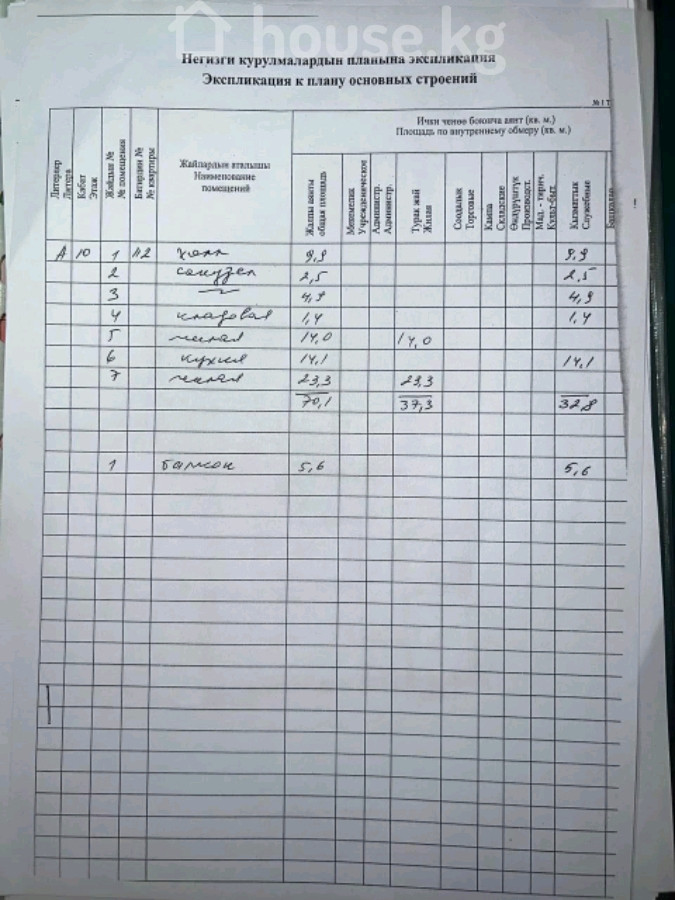 house.kg
Негизги курулмалардын планына экспликация
Экспликация к плану основных строений
Ички ченөө боюнча аянт (кв. м.)
Площадь по внутреннему обмеру (кв. м.)
Литерлер
Литера
Кабат
Этаж
Жайдын №
№ помещения
Батирдин №
№ квартиры
Жайлардын аталышы
Наименование
помещений
Жалпы аянты
общая площадь
Мекемелик
Учрежденическое
Администр.
Администр.
Турак жай
Жилая
Соодалык
Торговые
Кампа
Складские
Өндүрүштүк
Производст.
Мад. - тирич.
Культ-быт.
Кызматтык
Служебные
А 10 1 холл 9,9 9,9
2 санузел 2,5 2,5
3 —"— 4,9 4,9
4 кладовая 1,4 1,4
5 жилая 14,0 14,0
6 кухня 14,1 14,1
7 жилая 23,3 23,3
70,1 37,3 32,8
1 балкон 5,6 5,6